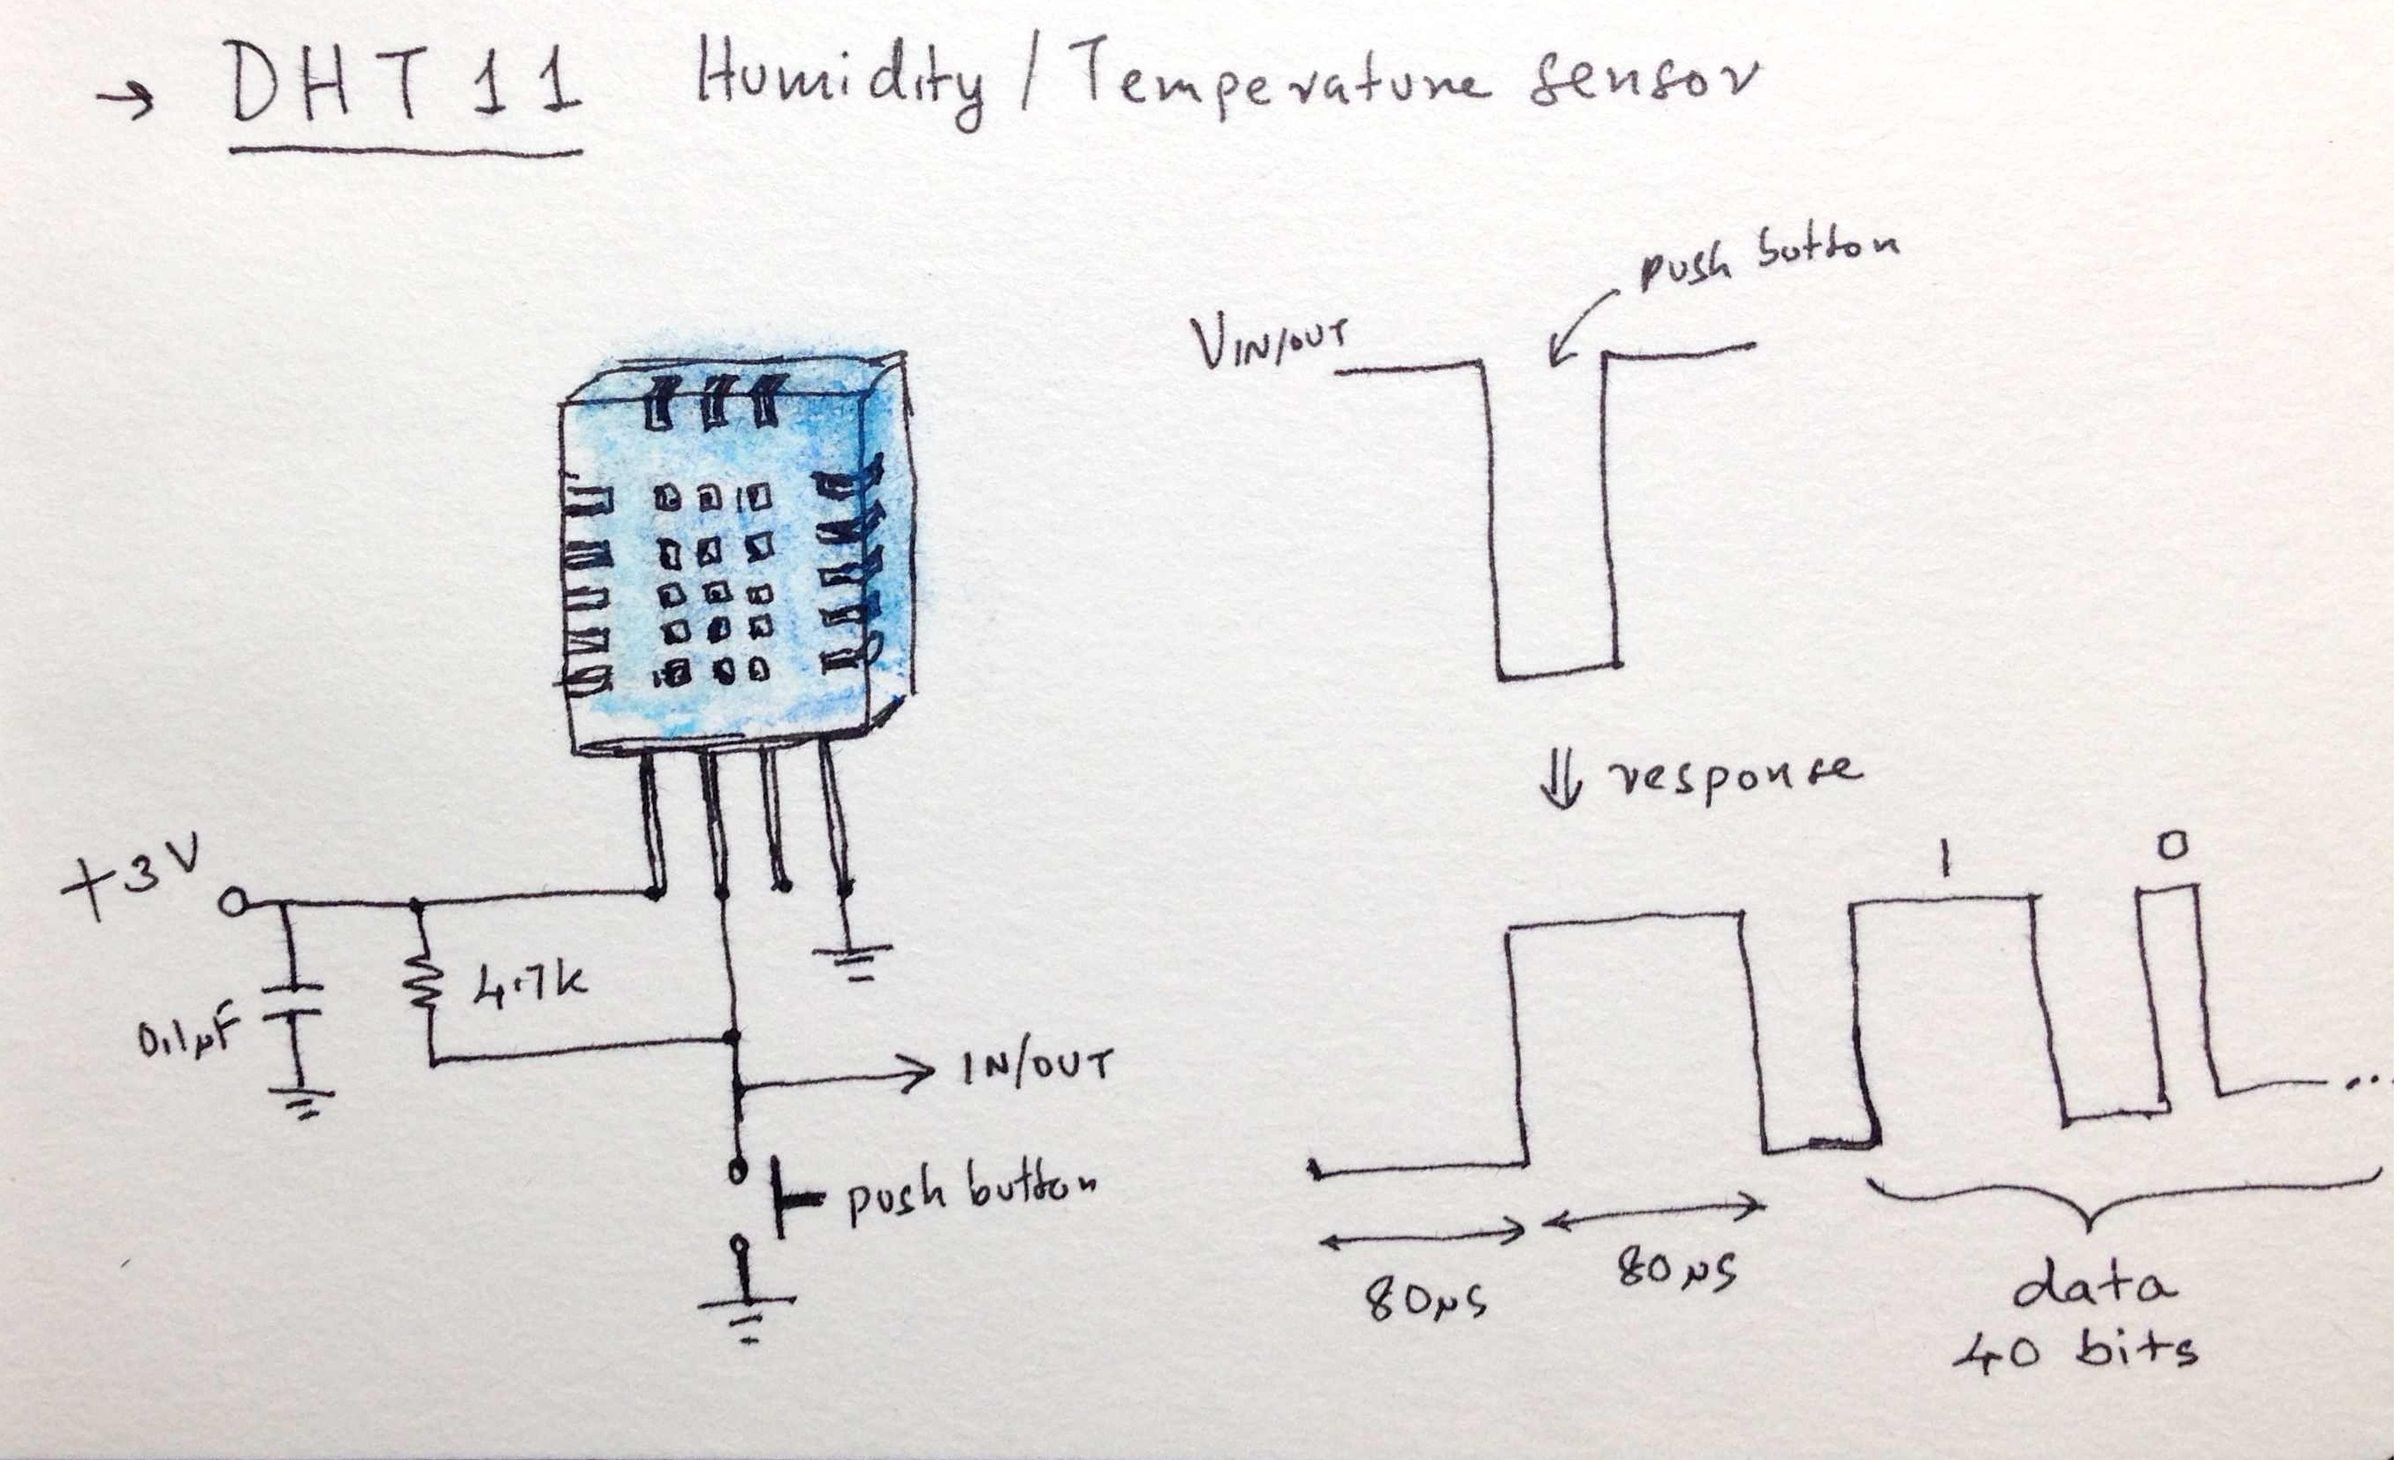 → DHT11 Humidity/Temperature sensor
push button
VIN/OUT
response
+3V
1
0
4.7k
0.1μF
IN/OUT
push button
80μs
80μs
data
40 bits
...